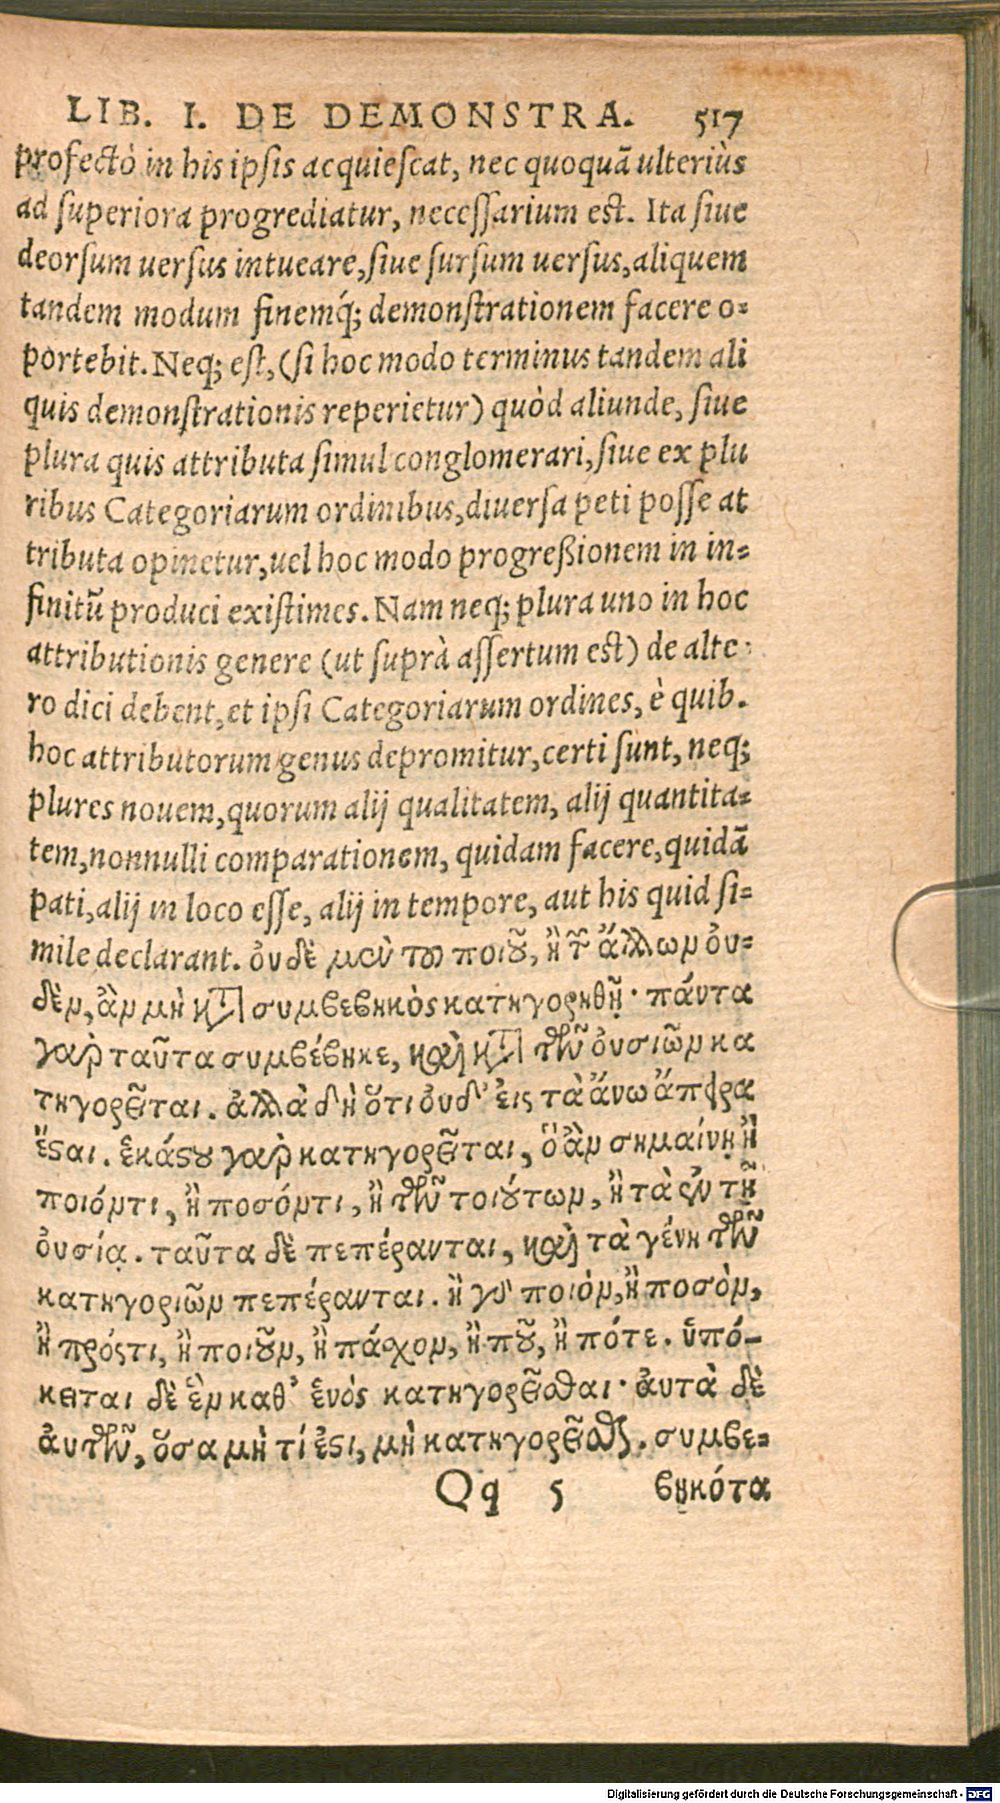 LIB. I. DE DEMONSTRA. 517
profectò in his ipsis acquiescat, nec quoquã ulteriùs
ad superiora progrediatur, necessarium est. Ita siue
deorsum uersus intueare, siue sursum uersus, aliquem
tandem modum finemq́; demonstrationem facere o-
portebit. Neq; est, (si hoc modo terminus tandem ali
quis demonstrationis reperietur) quòd aliunde, siue
plura quis attributa simul conglomerari, siue ex plu
ribus Categoriarum ordinibus, diuersa peti posse at
tributa opinetur, uel hoc modo progreßionem in in-
finitũ produci existimes. Nam neq; plura uno in hoc
attributionis genere (ut suprà assertum est) de alte-
ro dici debent, et ipsi Categoriarum ordines, è quib.
hoc attributorum genus depromitur, certi sunt, neq;
plures nouem, quorum alij qualitatem, alij quantita-
tem, nonnulli comparationem, quidam facere, quidã
pati, alij in loco esse, alij in tempore, aut his quid si-
mile declarant. ὀυδὲ μὴν τοῦ ποιοῦ, ἢ τῶν ἄλλων ὀυ-
δὲν, ἂν μὴ κατὰ συμβεβηκὸς κατηγορηθῇ· πάντα
γαρ̀ ταῦτα συμβέβηκε, καὶ κατὰ τῶν ὀυσιῶν κα
τηγορεῖται. ἀλλὰ δὴ ὅτι ὀυδ' ἐις τὰ ἄνω ἄπειρα
ἔσαι. ἑκάστου γαρ̀ κατηγορεῖται, ὃ ἂν σημαίνῃ ἢ
ποιόντι, ἢ ποσόντι, ἢ τῶν τοιούτων, ἢ τὰ ἐν τῇ
ὀυσίᾳ. ταῦτα δὲ πεπέρανται, καὶ τὰ γένη τῶν
κατηγοριῶν πεπέρανται. ἢ γὰρ ποιὸν, ἢ ποσὸν,
ἢ πρόςτι, ἢ ποιοῦν, ἢ πάσχον, ἢ ποῦ, ἢ πότε. ὑπό-
κειται δὲ ἓν καθ' ἑνὸς κατηγορεῖσθαι· ἀυτὰ δὲ
ἀυτῶν, ὅσα μὴ τί ἐστι, μὴ κατηγορεῖσθαι. συμβε-
Qq 5 βηκότα
Digitalisierung gefördert durch die Deutsche Forschungsgemeinschaft - DFG